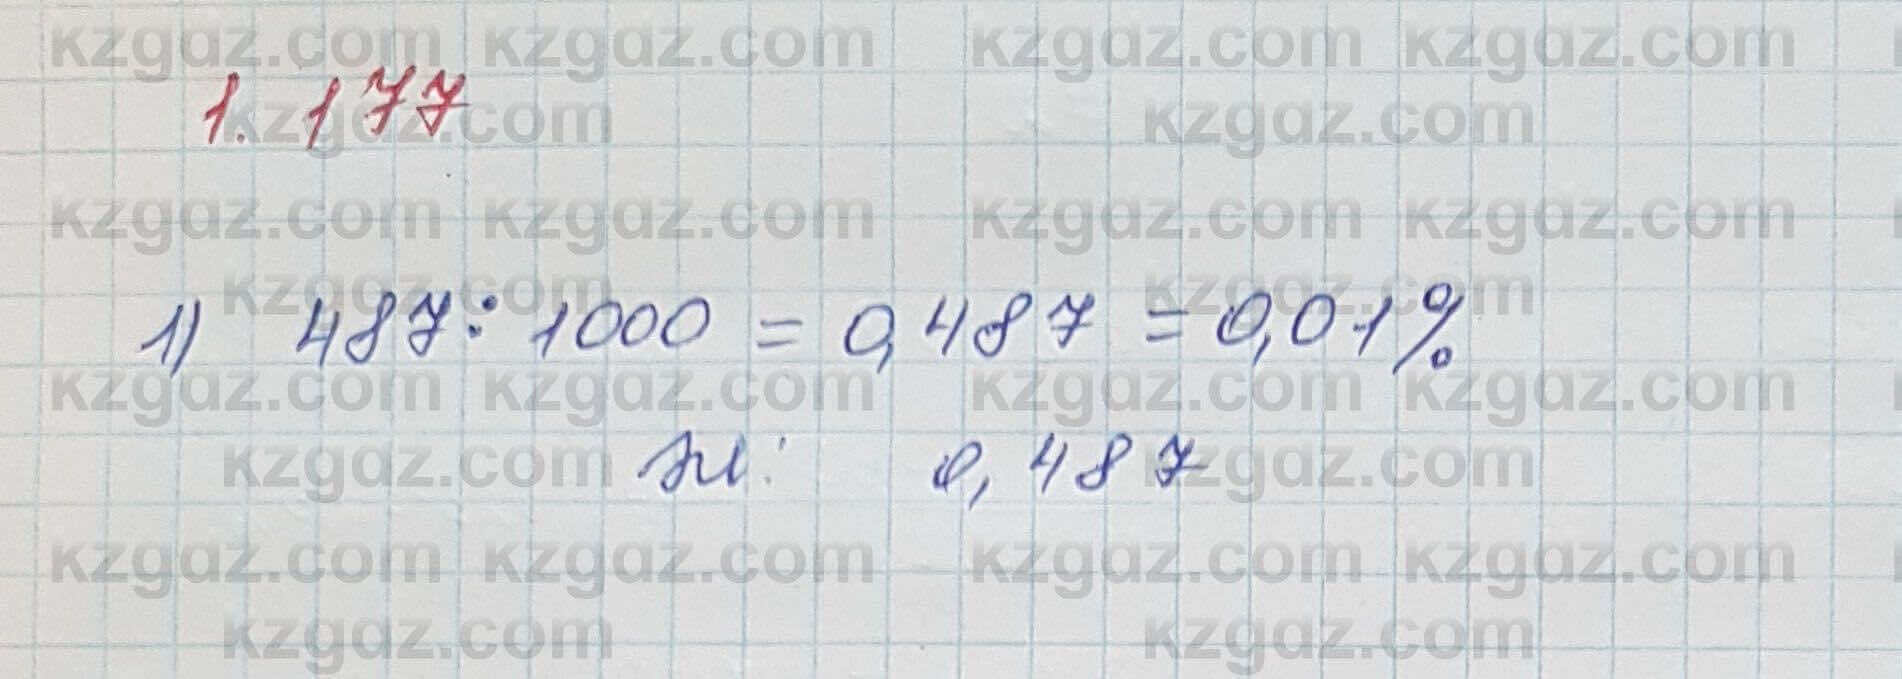 1.177
1) 487 : 1000 = 0,487 = 0,01%
Ж: 0,487
kzgaz.com kzgaz.com kzgaz.com kzgaz.com
kzgaz.com kzgaz.com
kzgaz.com kzgaz.com kzgaz.com kzgaz.com
kzgaz.com kzgaz.com
kzgaz.com kzgaz.com kzgaz.com kzgaz.com
kzgaz.com kzgaz.com
kzgaz.com kzgaz.com kzgaz.com kzgaz.com
kzgaz.com kzgaz.com